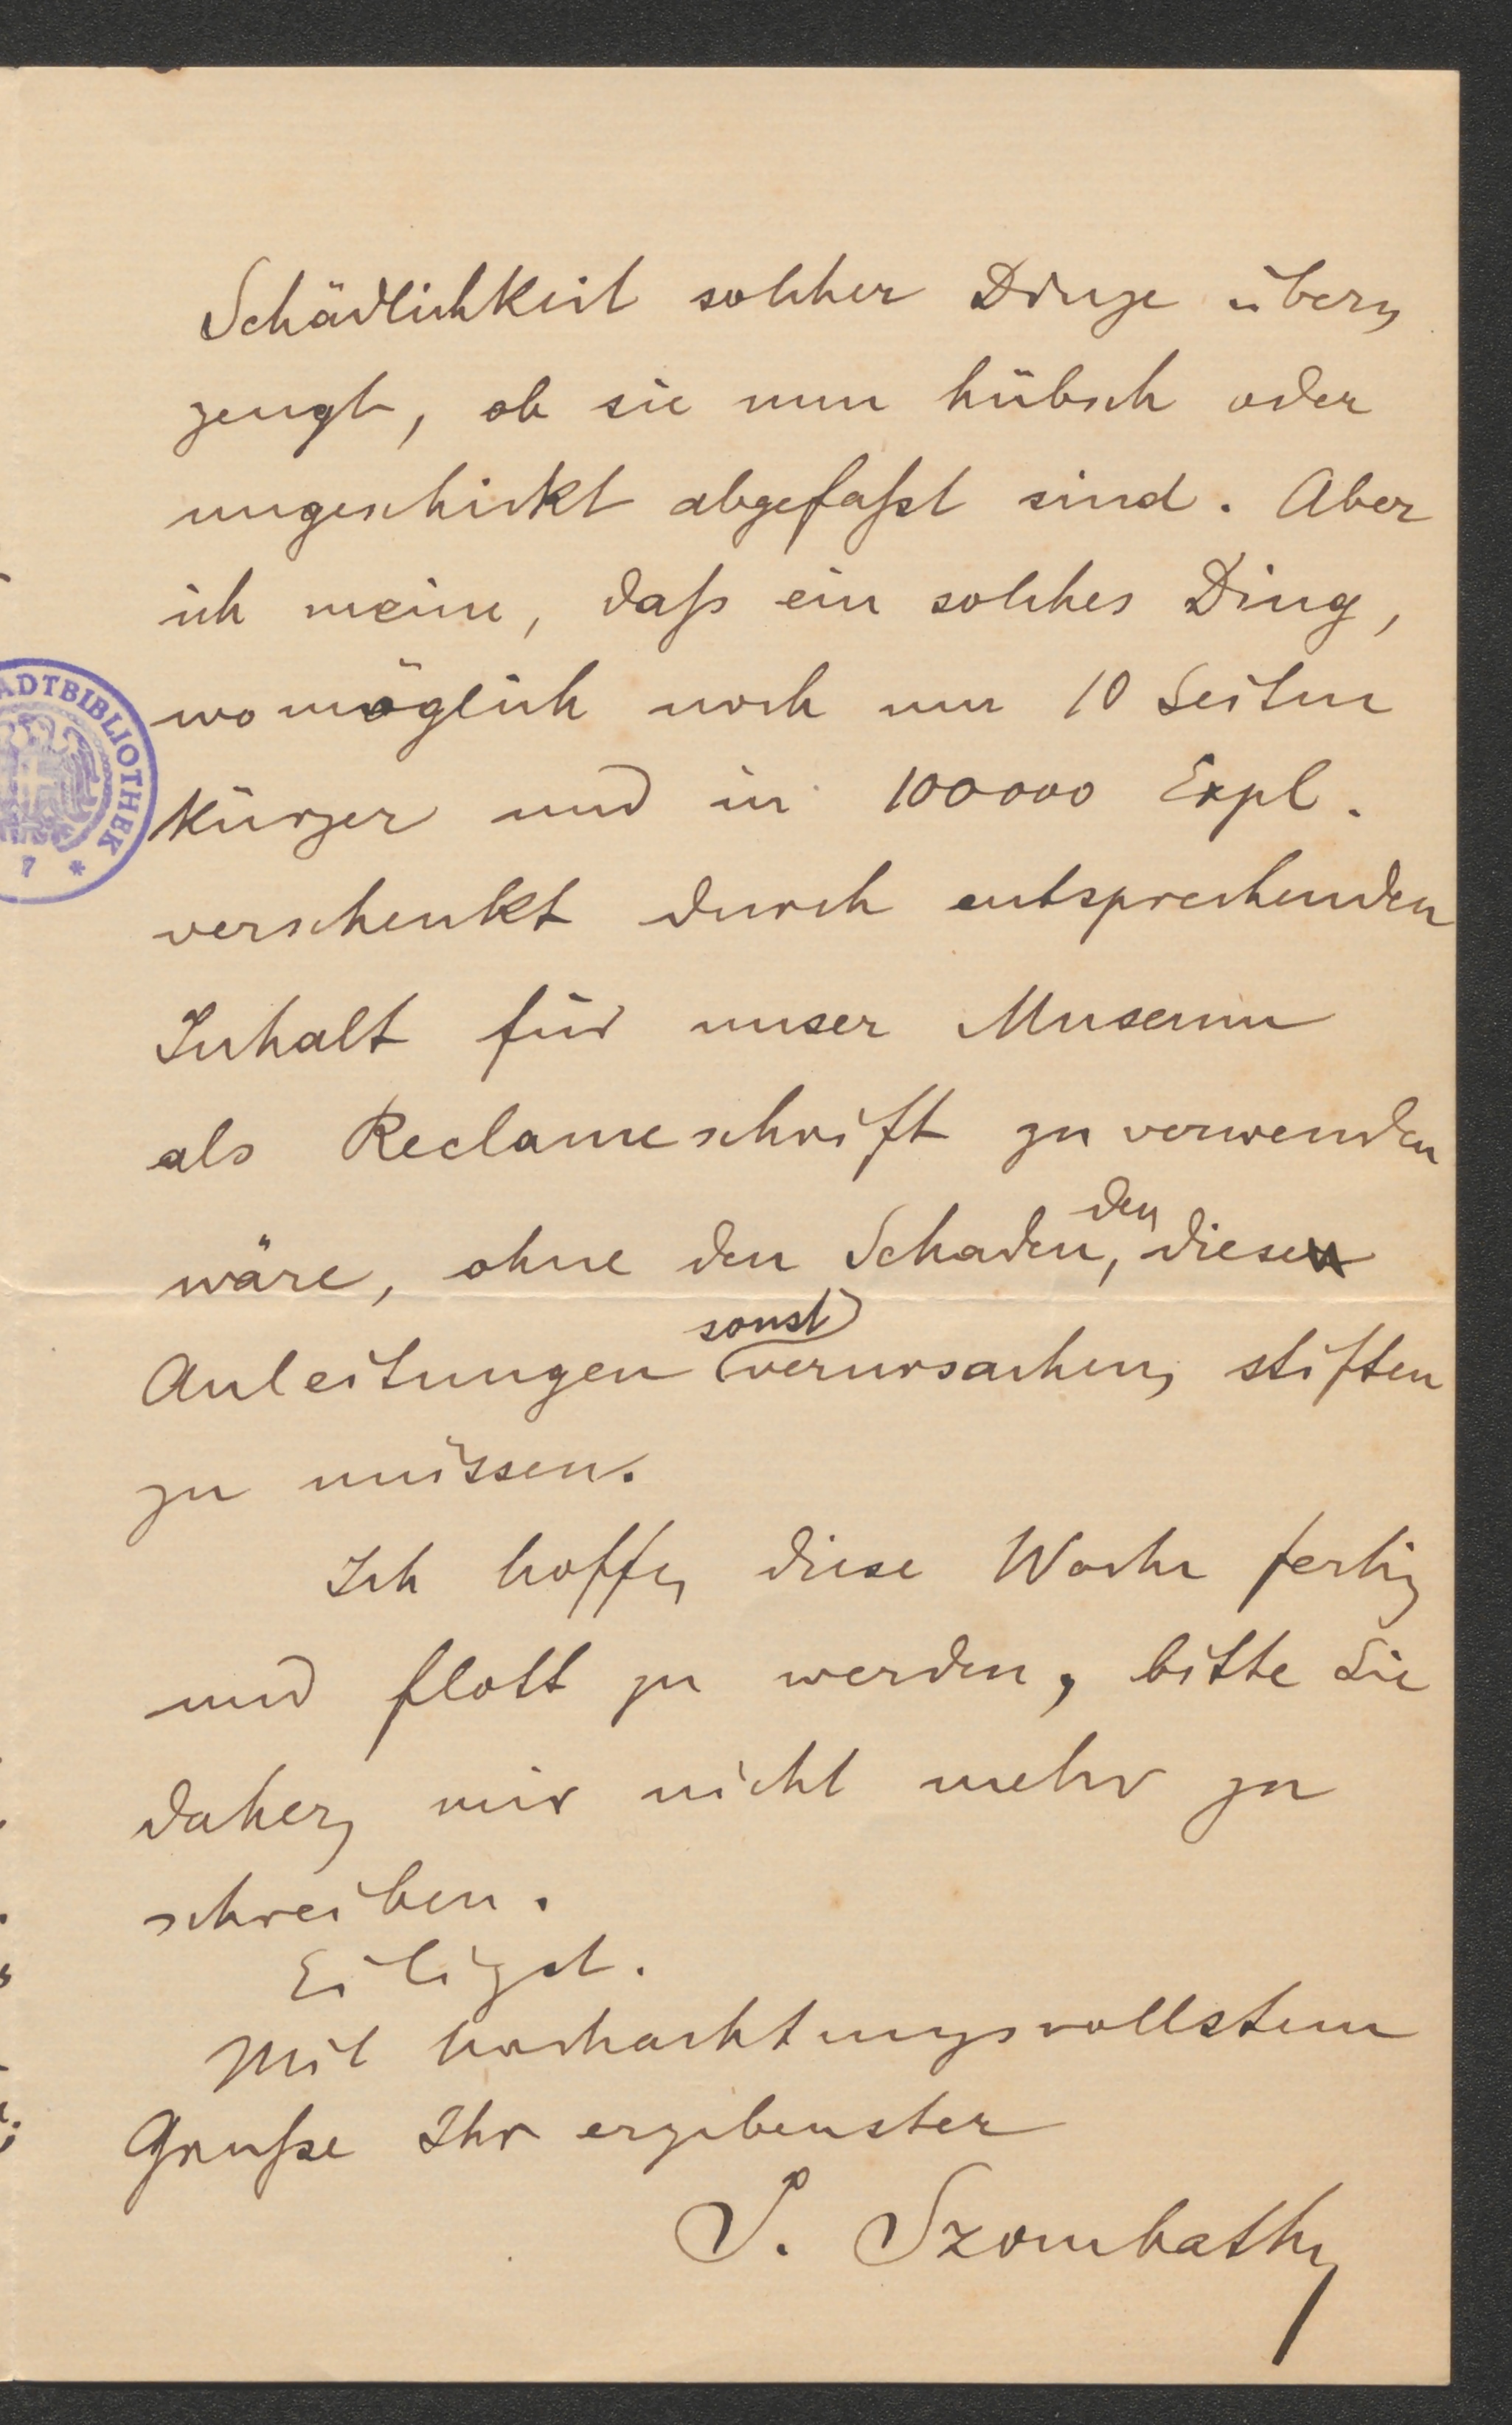 Schädlichkeit solcher Dinge über-
zeugt, ob sie nun hübsch oder
ungeschickt abgefaßt sind. Aber
ich meine, daß ein solches Ding,
womöglich noch um 10 Seiten
kürzer und in 100000 Expl.
verschenkt durch entsprechenden
Inhalt für unser Museum
als Reclameschrift zu verwenden
wäre, ohne den Schaden, den diese
Anleitungen sonst verursachen, stiften
zu müssen.
Ich hoffe, diese Woche fertig
und flott zu werden, bitte Sie
daher, mir nicht mehr zu
schreiben.
Eiligst.
Mit hochachtungsvollstem
Gruße Ihr ergebenster
J. Szombathy
ADTBIBLIOTHEK
7 *